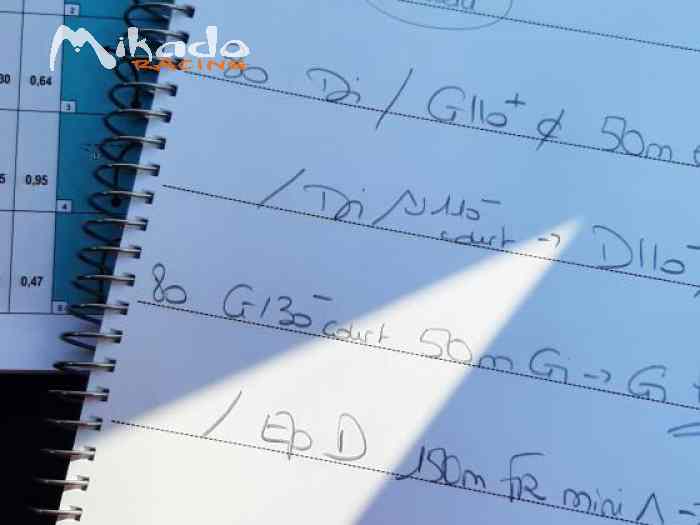 Mikado
RACING
2
0,64
3
0,95
4
0,47
5
80 Di / G110+ ¢ 50m
/ Di / 110-
court → D110-
80 G130- court 50m Gi → G
/ Ep D 150m FR mini